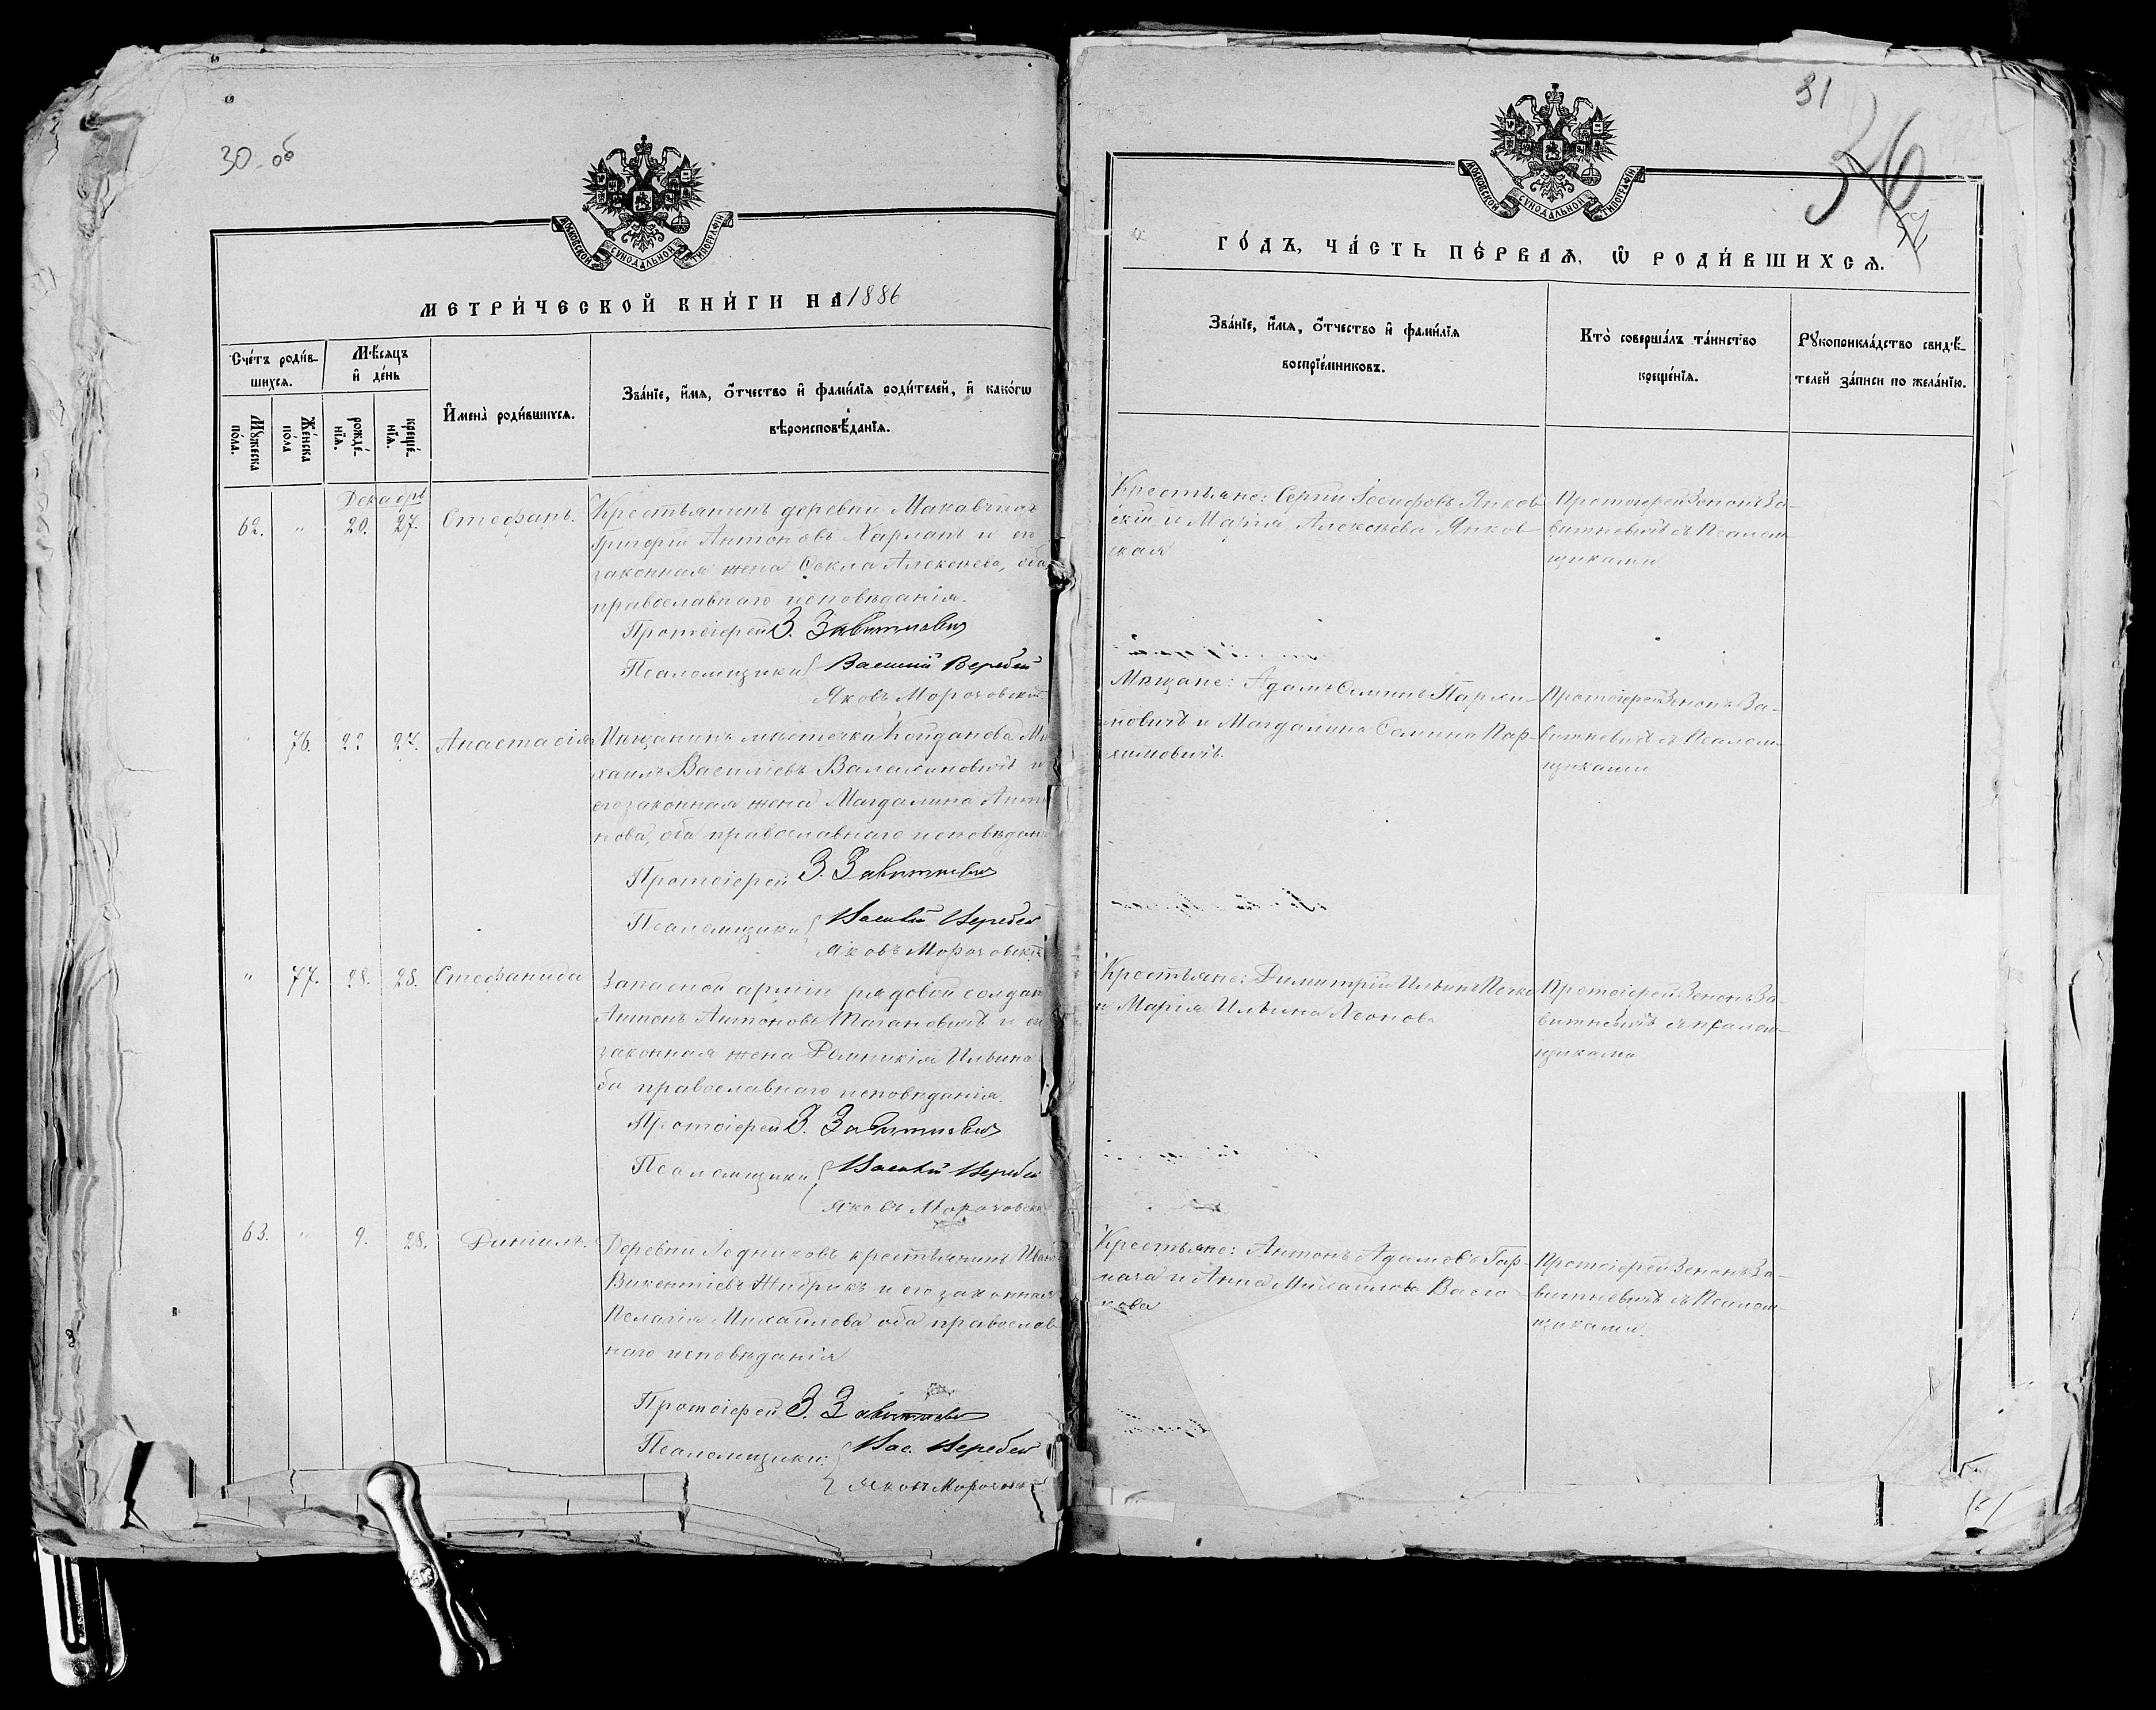 30 об
МОСКОВСКОЙ СѴНОДАЛЬНОЙ ТИПОГРАФІИ
МЕТРИ́ЧЕСКОЙ КНИ́ГИ НА 1886
Сче́тъ роди́вшихся.
Мѣ́сяцъ и де́нь
Мꙋ́жеска по́ла.
Же́нска по́ла
рожде́нїя.
креще́нїя.
И҆мена̀ роди́вшихся.
Зва́нїе, и҆́мя, ѻ҆́тчество и҆ фами́лїя роди́телей, и҆ како́гѡ
вѣроисповѣ́данїя.
Декабрь
62. " 20. 27. Стефанъ.
Крестьянинъ деревни
Григорій Антоновъ Харланъ и его
законная жена Ѳекла Алексѣева, оба
православнаго исповѣданія.
Протоіерей З. Завитневич
Псаломщики Василій Веребей
Яковъ Мороховскій
76. 22 27. Анастасія
Мѣщанинъ мѣстечка Койданова Ми-
хаилъ Васильевъ и
его законная жена Магдалина Анто-
нова, оба православнаго исповѣдан
Протоіерей З. Завитневич
Псаломщики Василій Веребей
Яковъ Мороховскій
" 77. 28. 28. Стефанида
Запасной арміи рядовой солдат
Антонъ Антоновъ и его
законная жена Домникія Ильина
ба православнаго исповѣданія.
Протоіерей З. Завитневич
Псаломщики Василій Веребей
Яковъ Мороховскій
63. " 9. 28. Даніилъ.
Деревни Ледниковъ крестьянинъ Иван
Викентіевъ Жибрикъ и его законная
Пелагія Михайлова оба православ
наго исповѣданія
Протоіерей З. Завитневич
Псаломщики: Вас. Веребей
Яковъ Мороховскій
31
36
МОСКОВСКОЙ СѴНОДАЛЬНОЙ ТИПОГРАФІИ
ГО́ДЪ, ЧА́СТЬ ПЕ́РВАЯ, Ѡ҆ РОДИ́ВШИХСЯ.
Зва́нїе, и҆́мя, ѻ҆́тчество и҆ фами́лїя
воспрїе́мниковъ.
Кто̀ соверша́лъ та́инство
креще́нїя.
Рꙋкоприкла́дство свидѣ́-
телей за́писи по жела́нїю.
Крестьяне: Сергій Іосифовъ Янков
скій и Марія Алексѣева Янков
ская
Протоіерей Зенонъ За-
витневичъ съ Псалом-
щиками
Мѣщане: Адамъ Ѳоминъ Пархи-
мовичъ и Магдалина Ѳомина Пар-
химовичъ.
Протоіерей Зенонъ За-
витневичъ съ Псалом-
щиками
Крестьяне: Димитрій Ильинъ
и Марія Ильина Леонова
Протоіерей Зенонъ За-
витневичъ съ псалом-
щиками
Крестьяне: Антонъ Адамовъ Гар-
и Анна Михайлова
Протоіерей Зенонъ За-
витневичъ съ Псалом-
щиками.